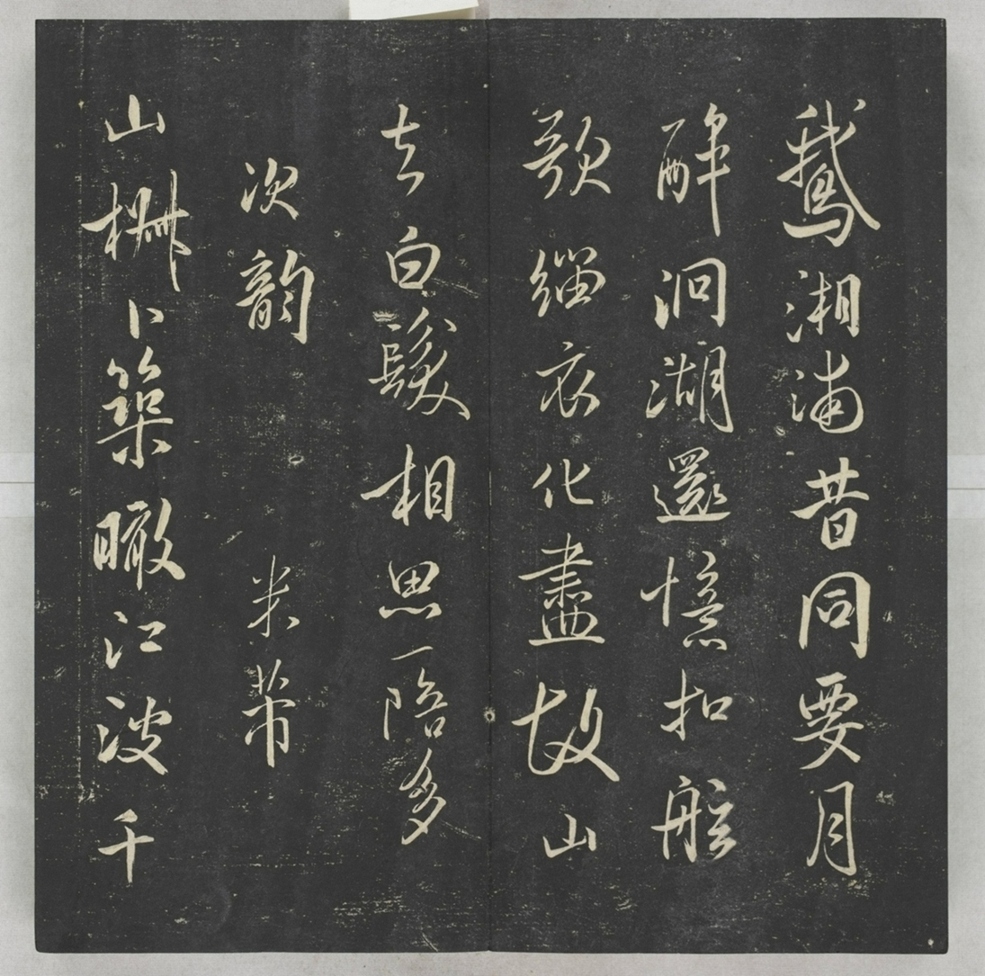 鵝湘浦昔同要月
醉洞湖還憶扣舷
歌緇衣化盡故山
去白髮相思一陪多
次韵　米芾
山椒卜築瞰江波千